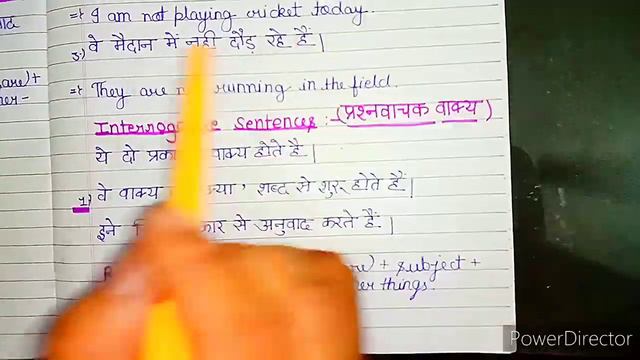 ⇒ I am not playing cricket today.
3) वे मैदान में नही दौड़ रहे हैं।
⇒ They are running in the field.
Interrog sentences :- (प्रश्नवाचक वाक्य)
ये दो वाक्य होते है।
1) वे वाक्य शब्द से शुरू होते हैं।
इने से अनुवाद करते हैं।
+ subject +
things.
PowerDirector